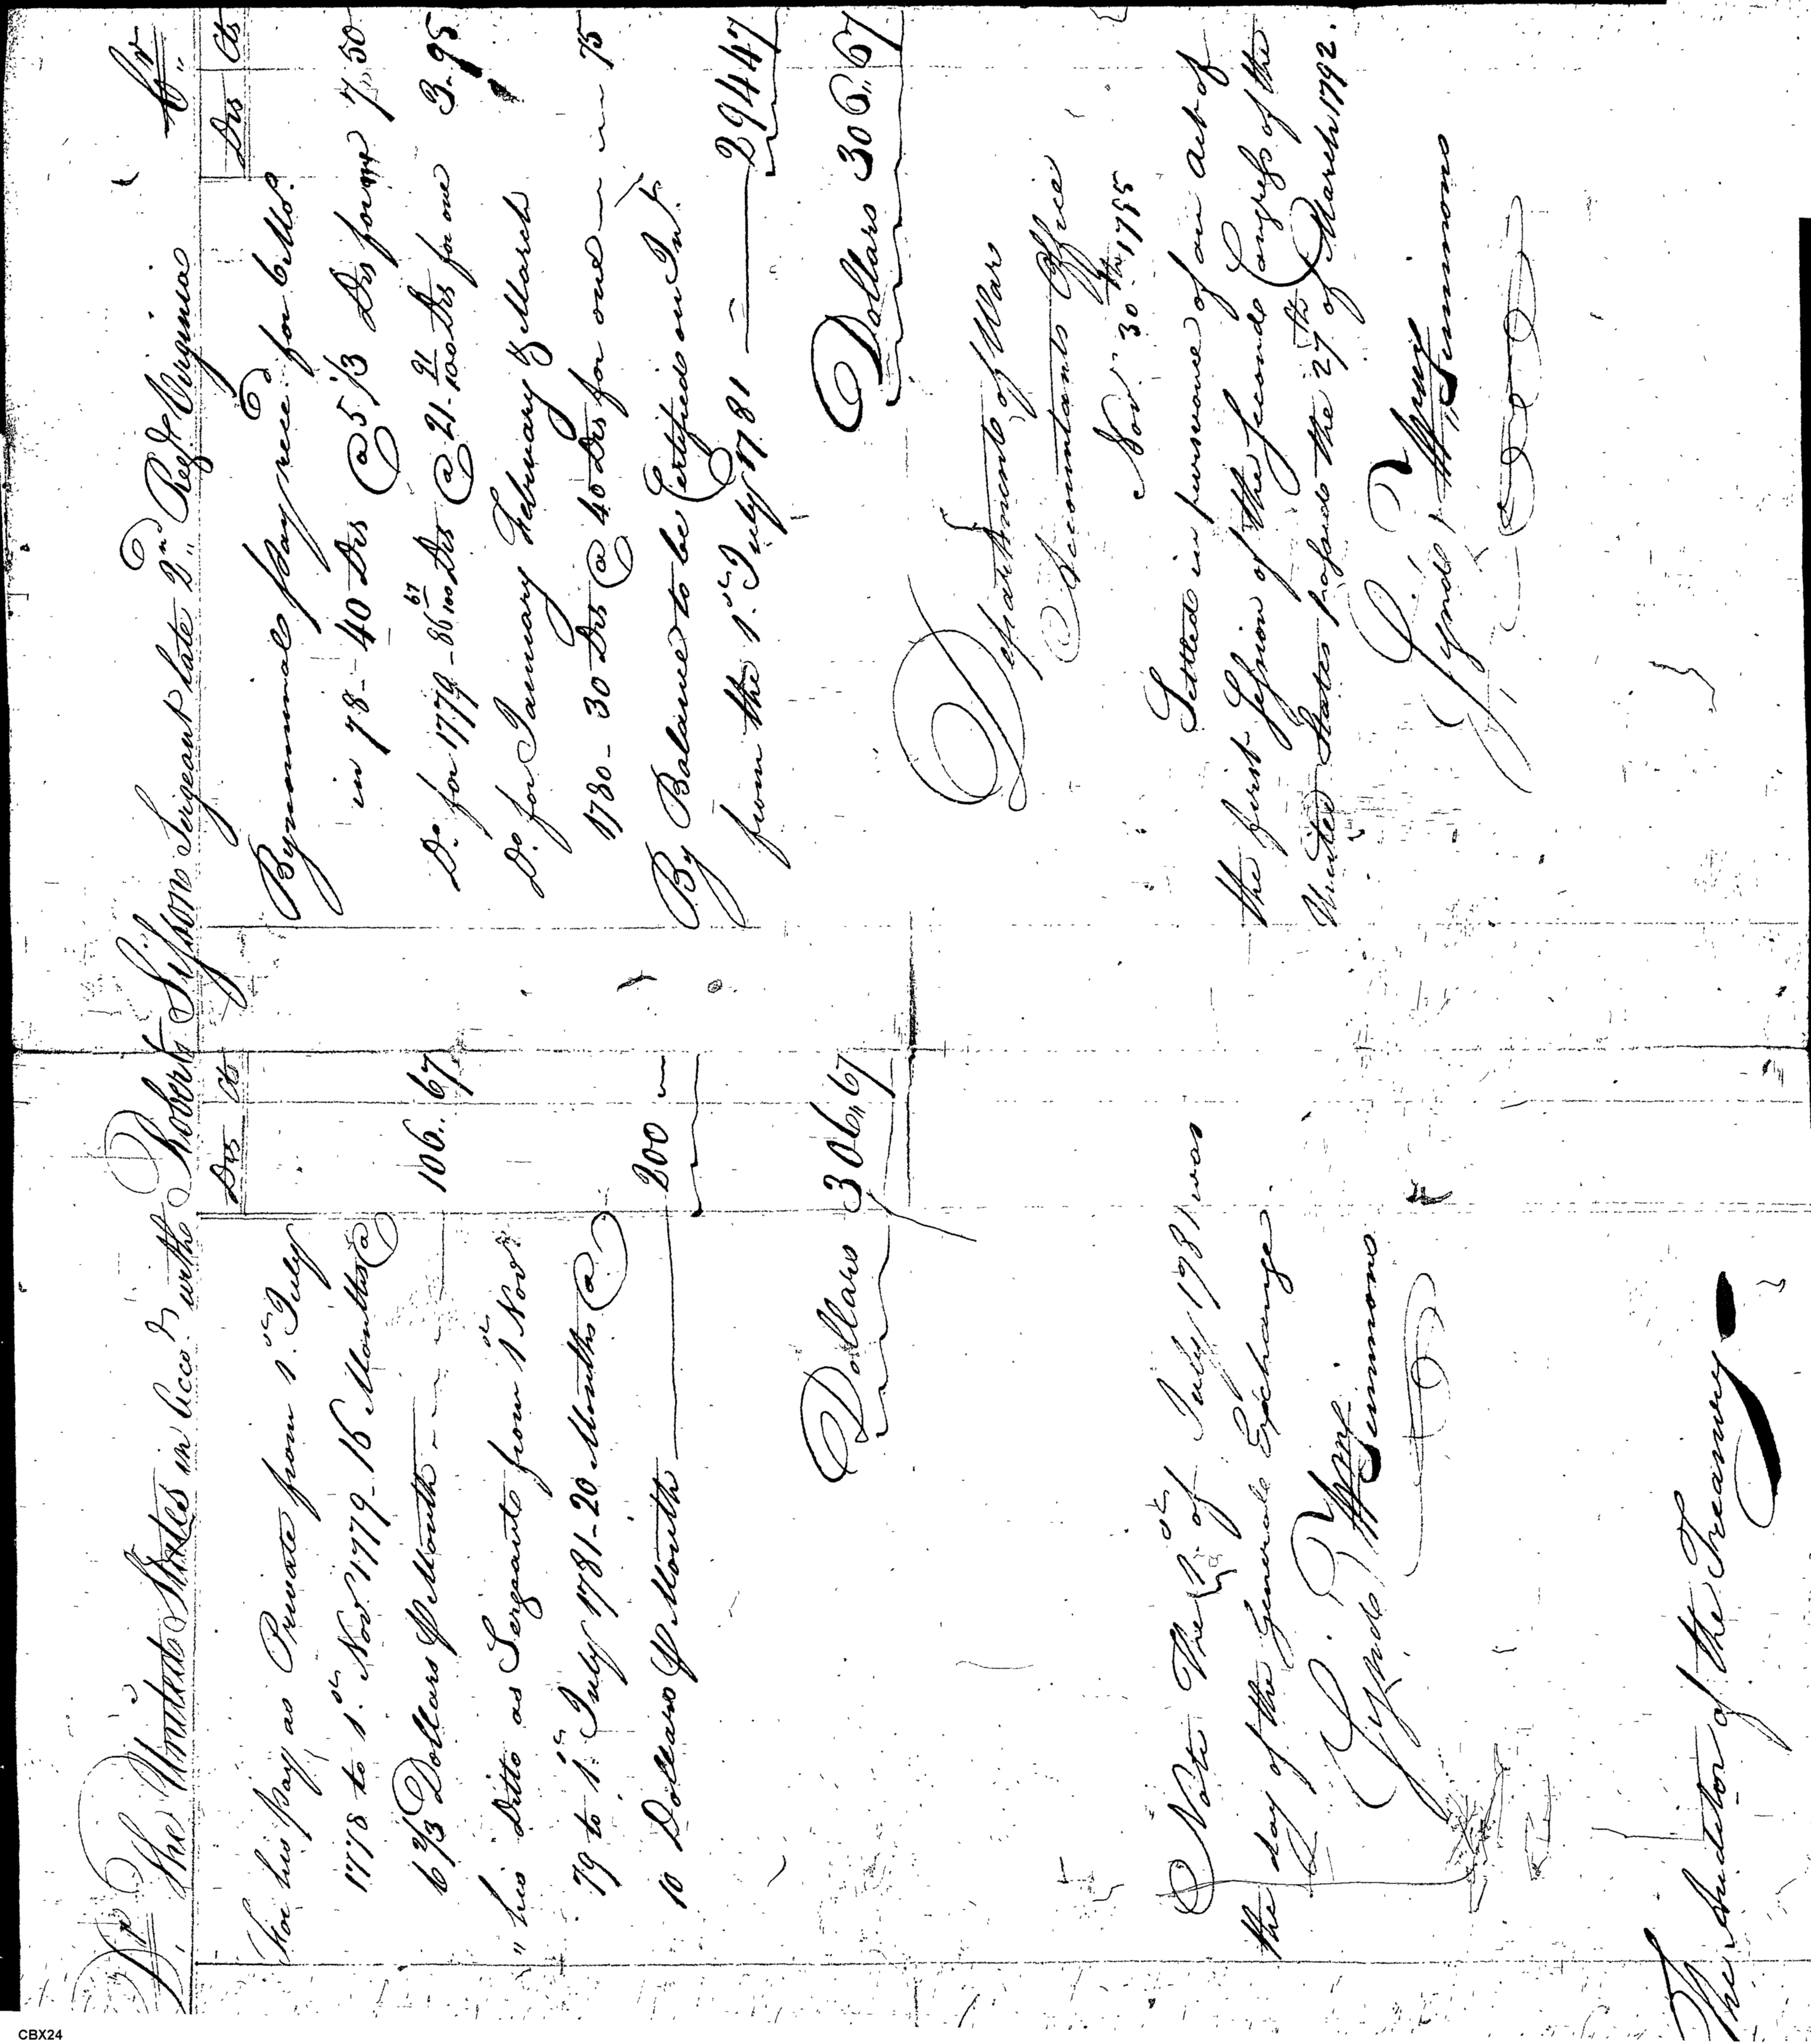 Dr. The United States in Acco.t with Robert Sisson Sergeant late 2.nd Reg.t Virginia Cr.
Drs Cts
For his Pay as Private from 1.st July
1778 to 1.st Nov.r 1779 - 16 Months @
6 2/3 Dollars ⅌ Month - - - 106.. 67
" his Ditto as Sergeant from 1.st Nov.r
79 to 1.st July 1781 - 20 Months @
10 Dollars ⅌ Month 200 —
Dollars 306.. 67
Note The 1.st of July 1781 was
the day of the General Exchange.
Sign'd, Wm. Simmons
The Auditor of the Treasury
Drs Cts
By nominal pay rece.d for 6 Mo.s
in 78 - 40 Drs @ 5 1/3 Drs for one 7.. 50
D.o for 1779 - 86 67/100 Drs @ 21 91/100 Drs for one 3.. 95
D.o for January February & March
1780 - 30 Drs @ 40 Drs for one — — 75
By Balance to be Certified on Int.t
from the 1.st July 1781 = 294 47
Dollars 306.. 67
Department of War
Accountants Office
Nov.r 30.th 1795
Settled in pursuance of an act of
the first Session of the Second Congress of the
United States passed the 27.th of March 1792.
Sign'd, Wm. Simmons
CBX24